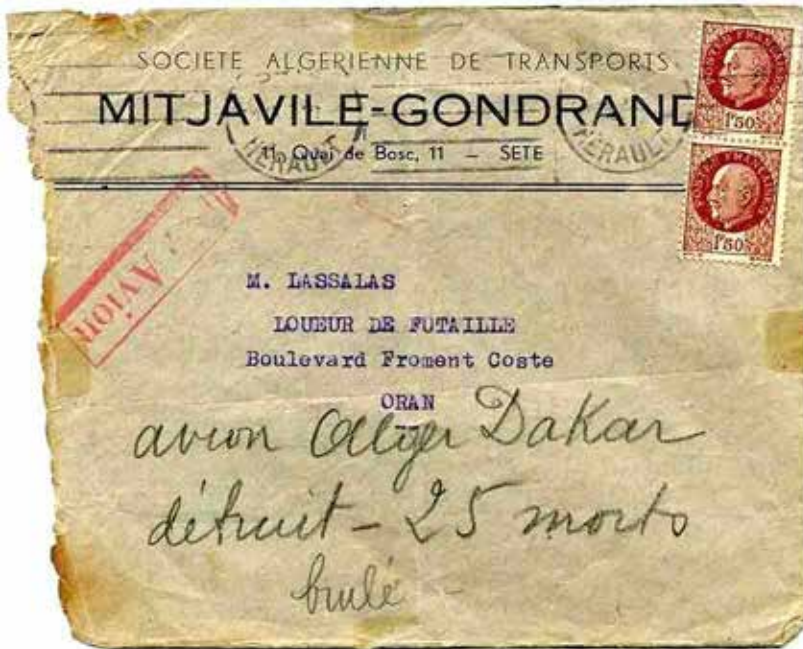 SOCIETE ALGERIENNE DE TRANSPORTS
MITJAVILE-GONDRAND
11, Quai de Bosc, 11 - SETE
HERAULT
HERAULT
POSTES FRANÇAISES
1F50
POSTES FRANÇAISES
1F50
Avion
M. LASSALAS
LOUEUR DE FUTAILLE
Boulevard Froment Coste
ORAN
avion Alger Dakar
détruit - 25 morts
brulé